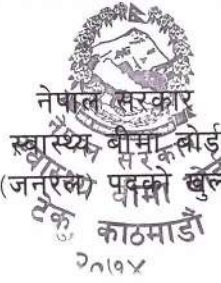 नेपाल सरकार
स्वास्थ्य बीमा बोर्ड
(जनरल) पदको खुल
टेकु काठमाडौं